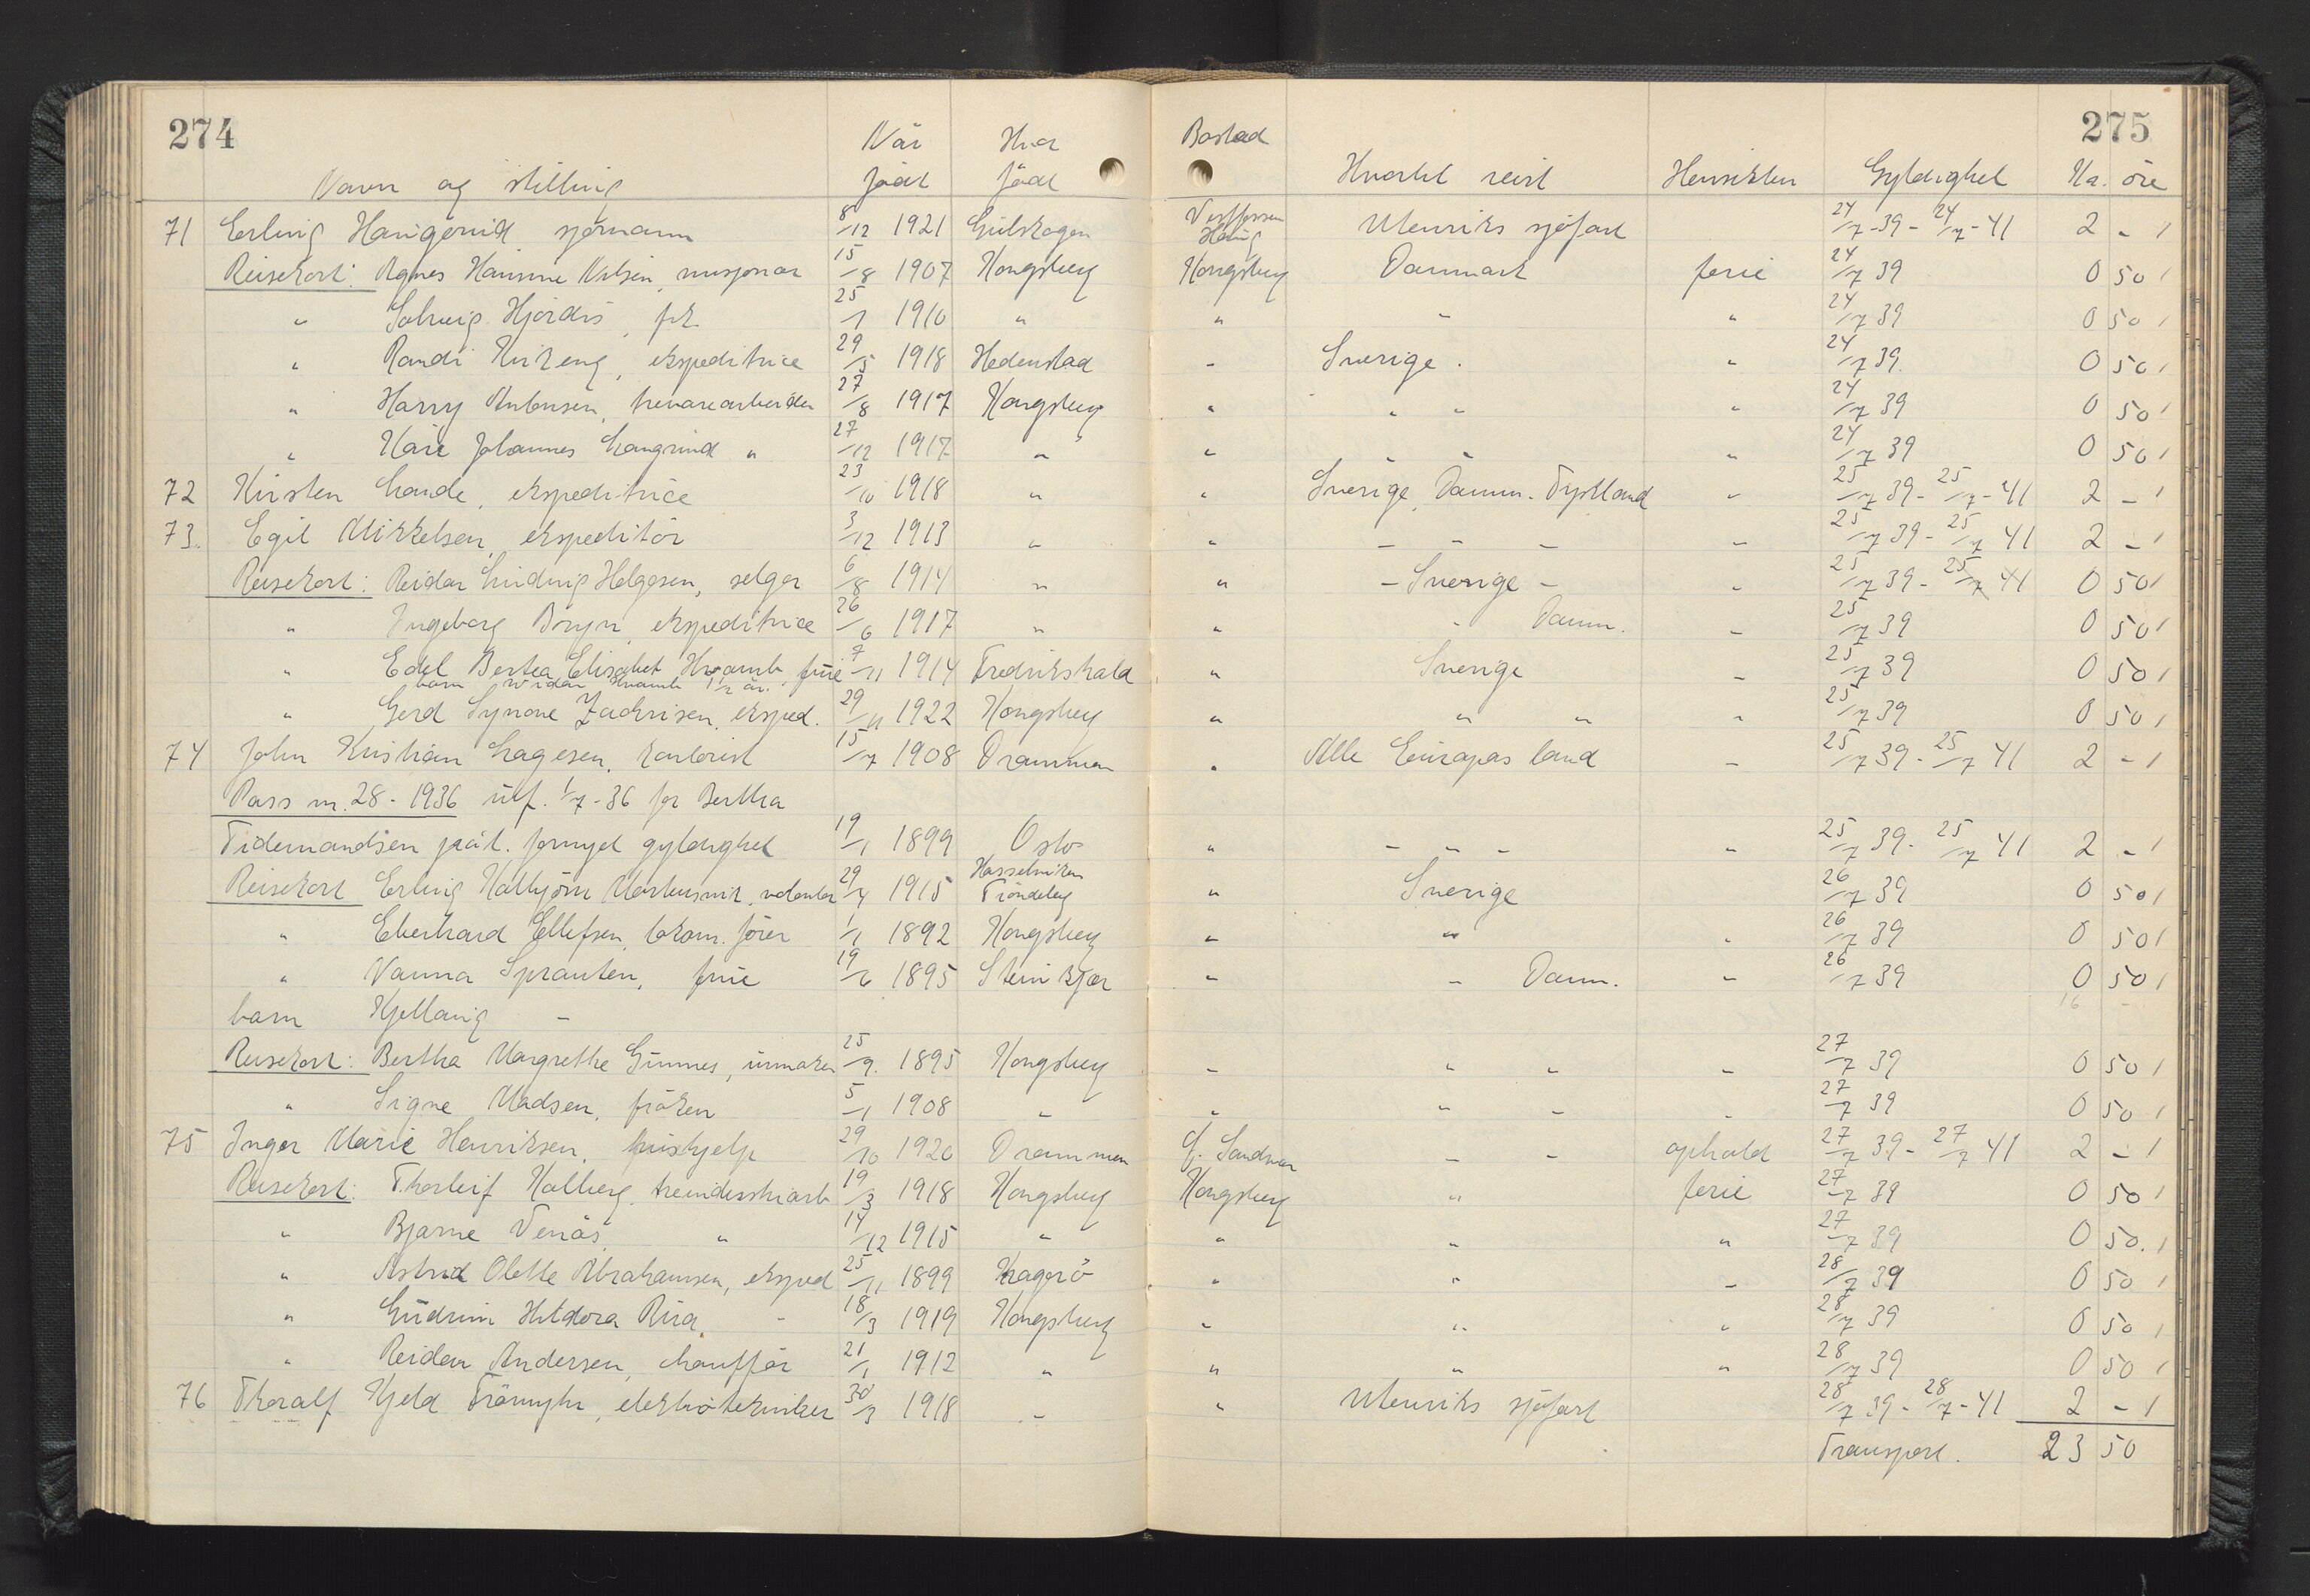 274 275
Når Hvor Bostad
Navn og stilling født født Hvortil reist Hensikten Gyldighet Kr. øre
71 Erling sjømann 8/12 1921 Gulskogen Utenriks sjøfart 24/7-39 - 24/7-41 2 -
Reisekort: Agnes Hansine Nilsen, 15/8 1907 Kongsberg Kongsberg Danmark ferie 24/7 39 0 50
" Solveig Hjørdis, frk. 25/1 1910 " " " " 24/7 39 0 50
" Randi ekspeditrice 29/5 1918 Hedenstad - Sverige. " 24/7 39 0 50
" Harry trevarearbeider 27/8 1917 Kongsberg " " " " 24/7 39 0 50
" Kåre Johannes Langrind " 27/12 1917 " " " " " 24/7 39 0 50
72 Kirsten Lande, ekspeditrice 23/10 1918 " " Sverige, Danm. Tyskland " 25/7 39 - 25/7-41 2 -
73. Egil Mikkelsen, ekspeditør 3/12 1913 " " - - - - 25/7 39 - 25/7 41 2 -
Reisekort: Reidar Ludvig Helgesen, selger 6/8 1914 " " - Sverige - " 25/7 39 - 25/7 41 0 50
" Ingeborg Bryn, ekspeditrice 26/6 1917 " " " Danm. - 25/7 39 0 50
" Edel Bertea Elisabet Hvamb, frue 7/11 1914 Fredrikshald " Sverige - 25/7 39 0 50
barn Widar Hvamb 1 1/2 år.
" Gerd Synøve Zachrisen, eksped. 29/11 1922 Kongsberg " " " " 25/7 39 0 50
74 John Kristian Lagesen, kontorist 15/7 1908 Drammen " Alle Europas land - 25/7 39 - 25/7 41 2 -
Pass nr. 28 - 1936 utf. 1/7-36 for Bertha
Tidemandsen påt. fornyet gyldighet 19/1 1899 Oslo " - - - " 25/7 39 - 25/7 41 2 -
Reisekort Erling 29/4 1915 Hasselviken Trøndelag " Sverige 26/7 39 0 50
" Eberhard Ellefsen, lokom. fører 1/1 1892 Kongsberg " " " 26/7 39 0 50
" Nanna Sprauten, frue 19/6 1895 Steinkjer " - Danm. - 26/7 39 0 50
barn Kjellaug - 16 -
Reisekort: Bertha Margrethe Gunnes, urmaker 25/9. 1895 Kongsberg - " " - 27/7 39 0 50
" Signe Madsen, frøken 5/1 1908 - " " - - 27/7 39 0 50
75 Inger Marie Henriksen, hushjelp 29/10 1920 Drammen Sandsvær - - ophold 27/7 39 - 27/7 41 2 -
Reisekort: Thorleif Kolberg, 19/3 1918 Kongsberg Kongsberg " ferie 27/7 39 0 50
" Bjarne Venås " 14/12 1915 " " " " 27/7 39 0 50.
" Astrid Olette Abrahamsen, eksped 25/11 1899 Kragerö " " - 28/7 39 0 50
" Gudrun - 18/3 1919 Kongsberg " " " 28/7 39 0 50
" Reidar Andersen, chauffør 21/1 1912 " " " " 28/7 39 0 50
76 Thoralf Kjeld elektrotekniker 30/3 1918 - " Utenriks sjøfart 28/7 39 - 28/7-41 2 -
Transport. 23 50